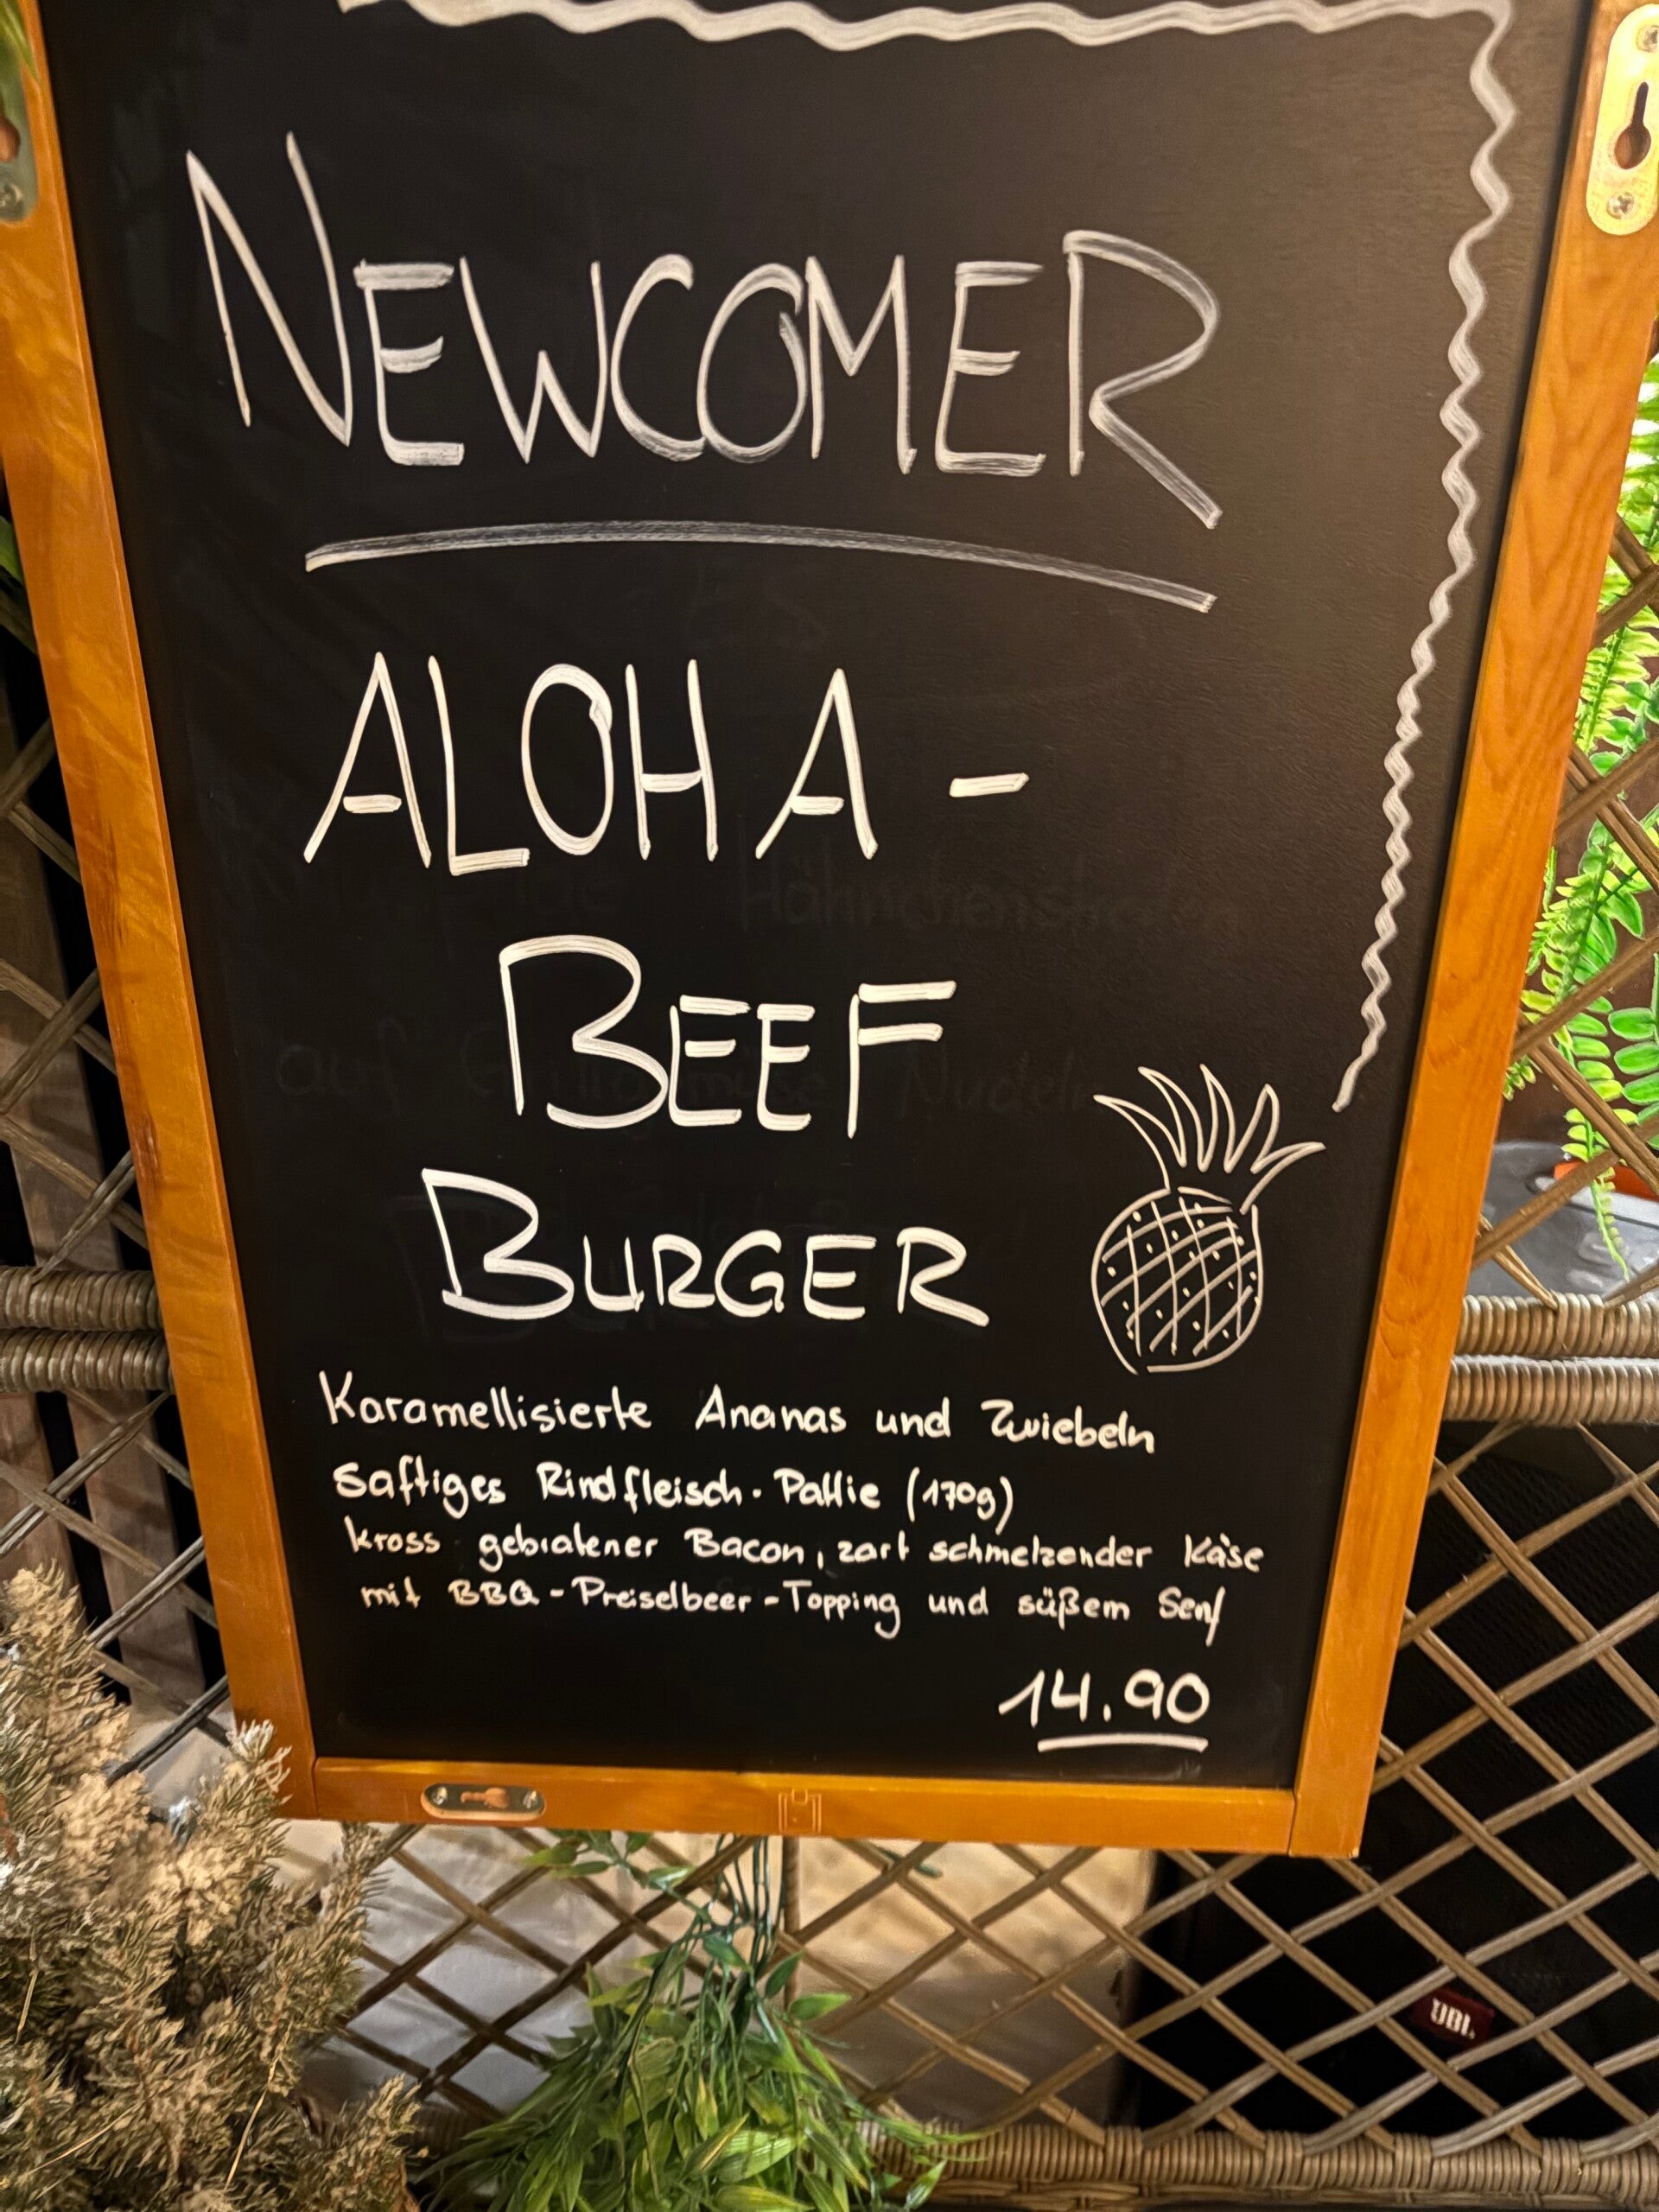 NEWCOMER
ALOHA-
BEEF
BURGER
Karamellisierte Ananas und Zwiebeln
Saftiges Rindfleisch-Pattie (170g)
kross gebratener Bacon, zart schmelzender Käse
mit BBQ-Preiselbeer-Topping und süßem Senf
14.90
JBL